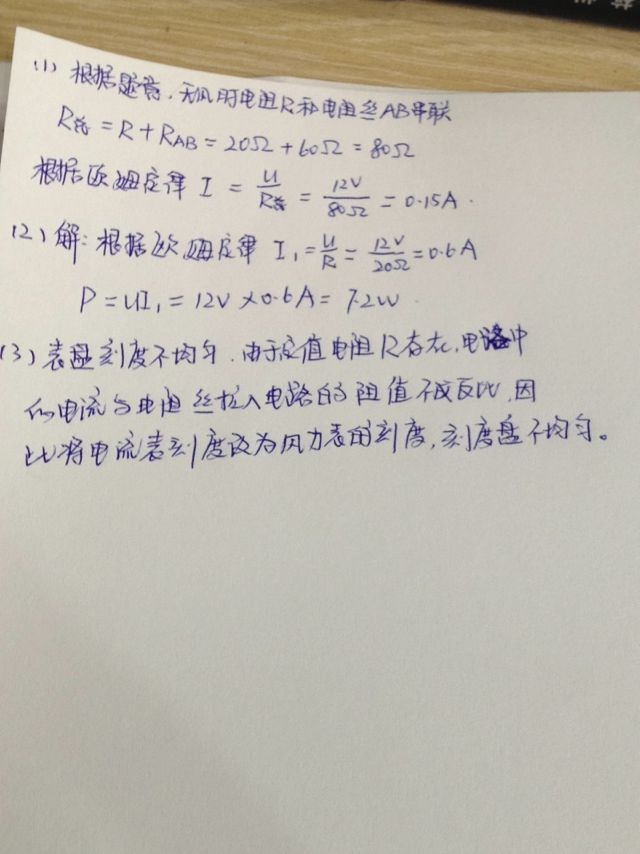 (1) 根据题意，无风时电阻R和电阻丝AB串联
R总 = R + RAB = 20Ω + 60Ω = 80Ω
根据欧姆定律 I = U/R总 = 12V/80Ω = 0.15A.
(2) 解：根据欧姆定律 I1 = U/R = 12V/20Ω = 0.6A
P = UI1 = 12V × 0.6A = 7.2W.
(3) 表盘刻度不均匀. 由于定值电阻R存在, 电路中
的电流与电阻丝接入电路的阻值不成反比, 因
此将电流表刻度改为风力表的刻度, 刻度盘不均匀。